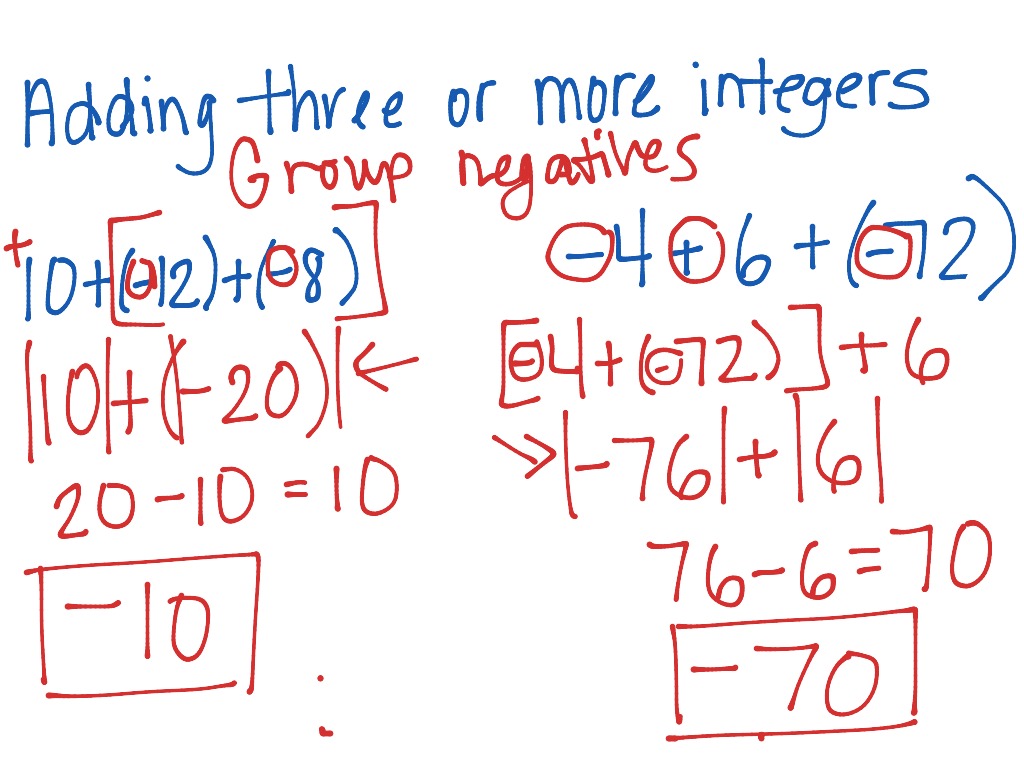 Adding three or more integers
Group negatives
+10+[(-12)+(-8)]
|10|+|(-20)|
20-10=10
-10
-4+6+(-72)
[-4+(-72)]+6
|-76|+|6|
76-6=70
-70